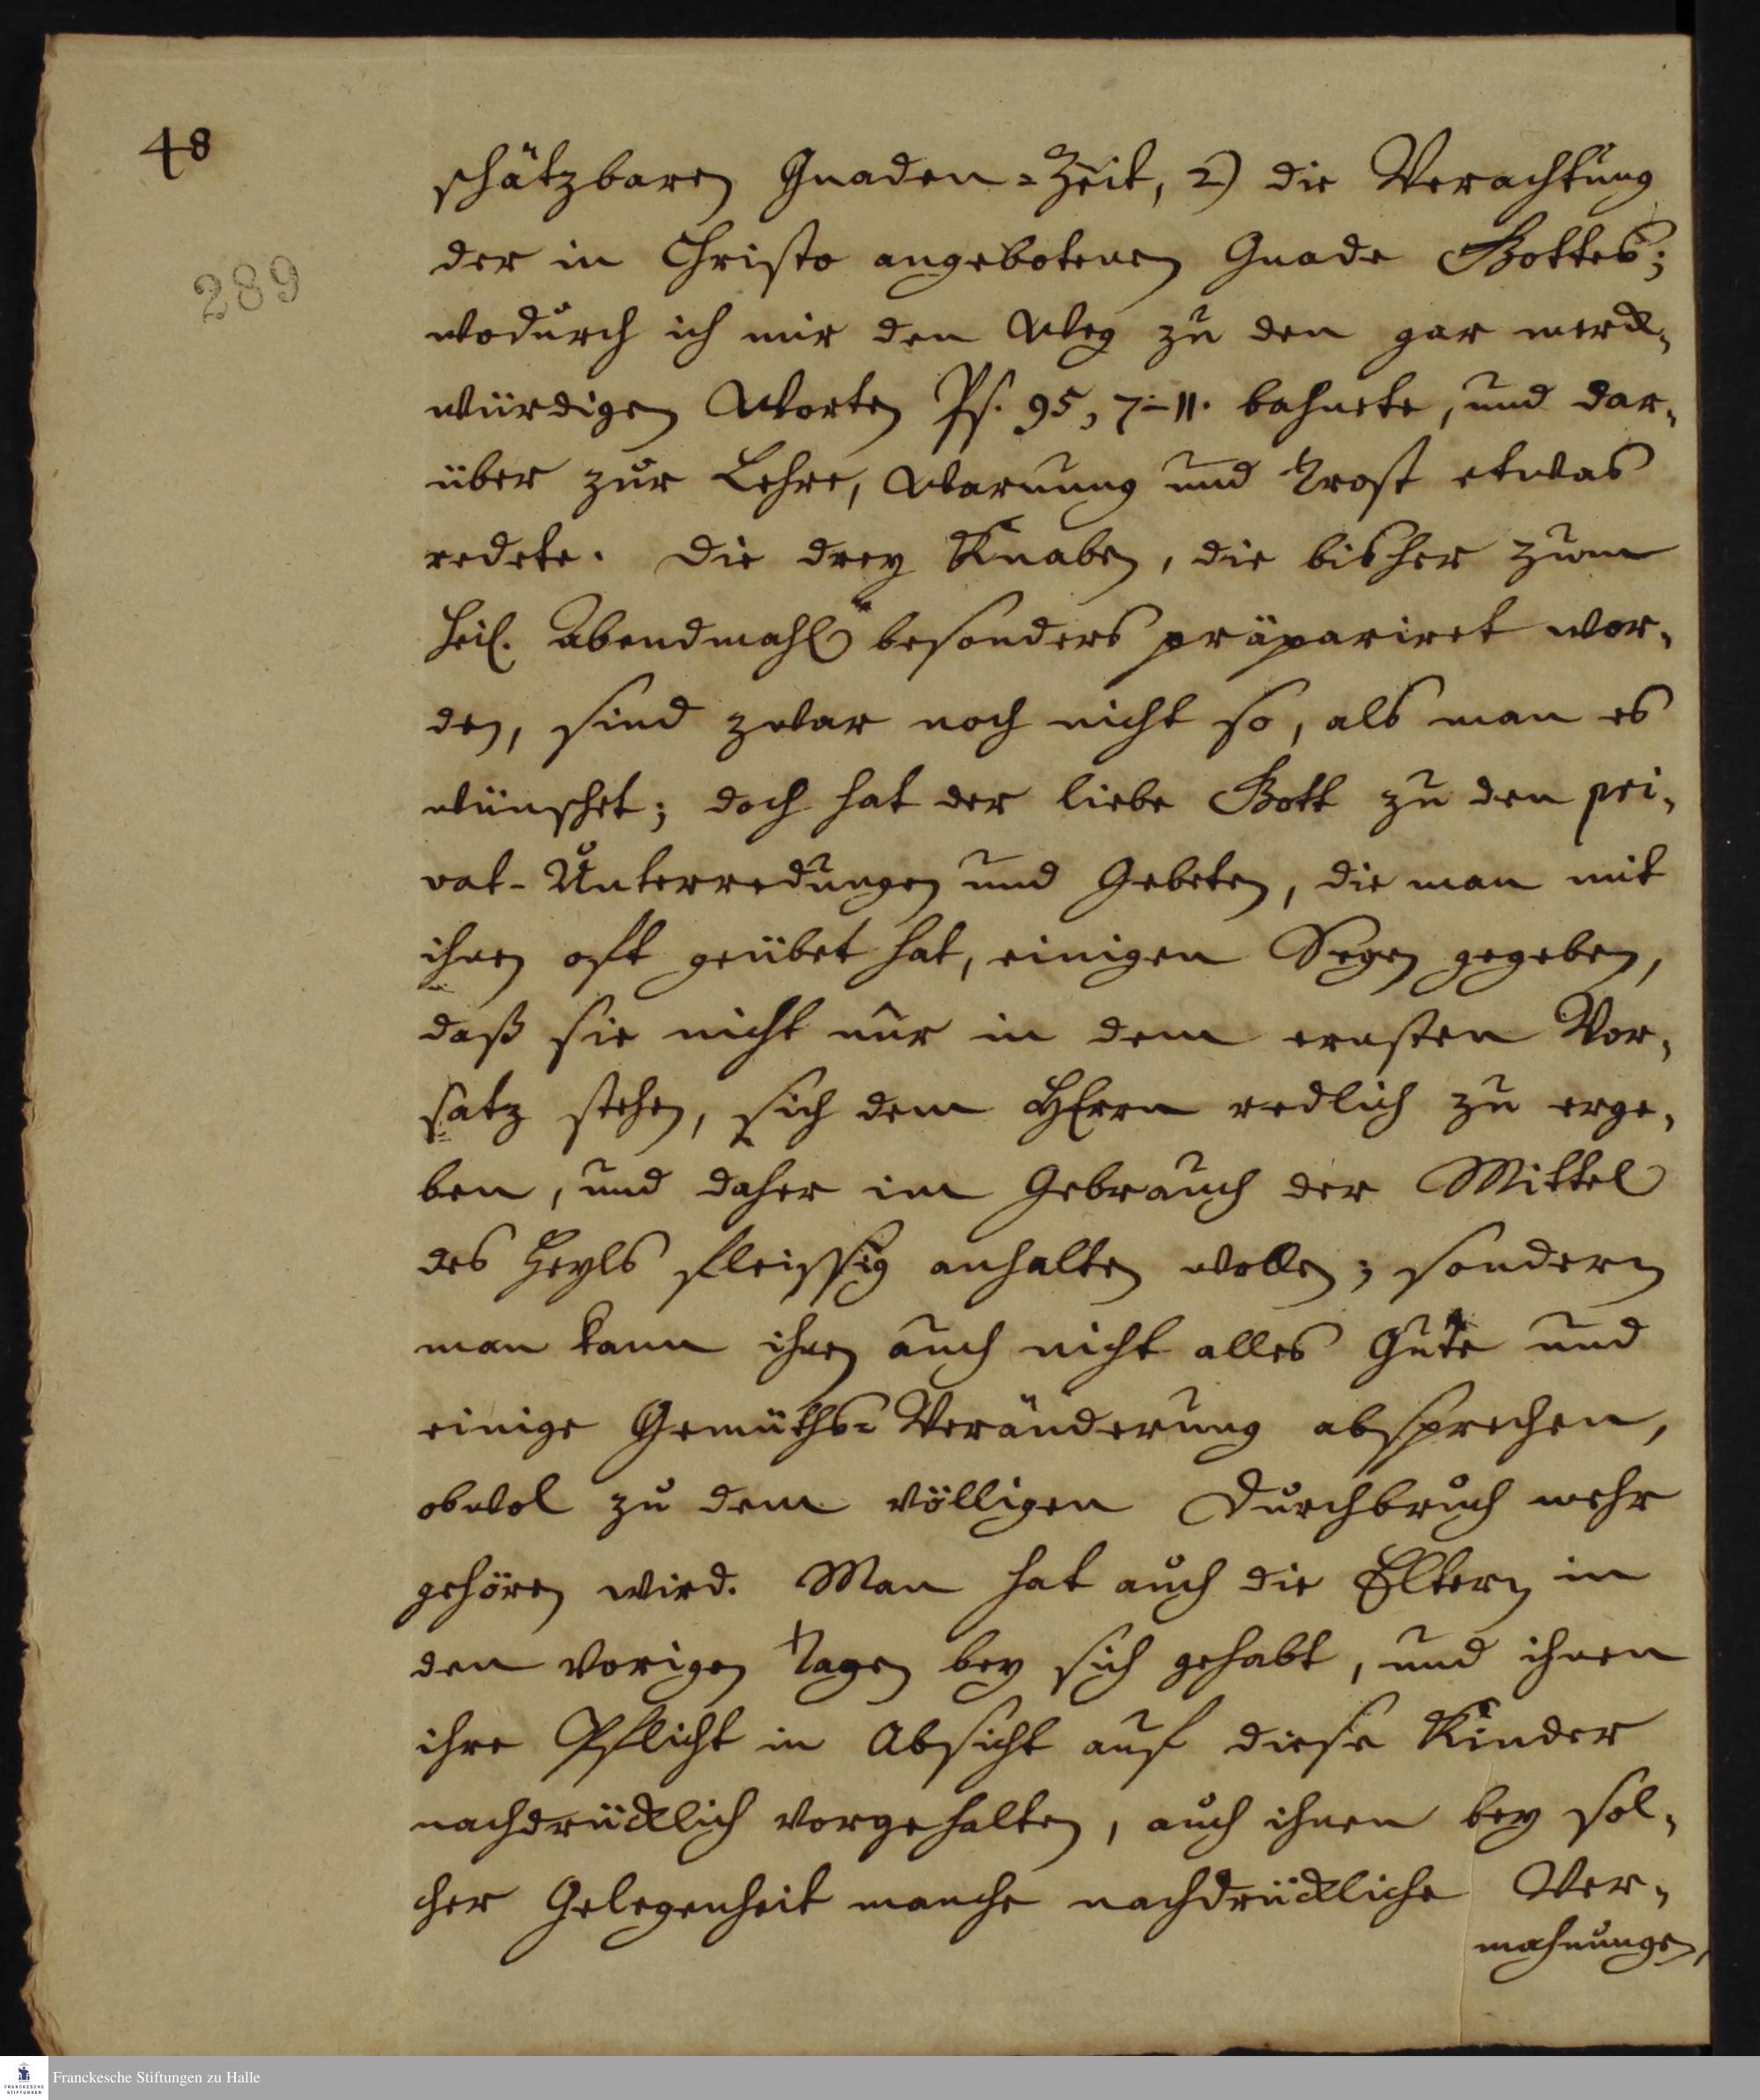 48
289
schätzbaren Gnaden=Zeit, 2) die Verachtung
der in Christo angebotenen Gnade Gottes;
wodurch ich mir den Weg zu den gar merck„
würdigen Worten Ps. 95, 7-11. bahnete, und dar„
über zur Lehre, Warnung und Trost etwas
redete. Die drey Knaben, die bisher zum
heil. Abendmahl besonders präpariret wor„
den, sind zwar noch nicht so, als man es
wünschet; doch hat der liebe Gott zu den pri„
vat-Unterredungen und Gebeten, die man mit
ihnen oft geübet hat, einigen Segen gegeben,
daß sie nicht nur in dem ernsten Vor„
satz stehen, sich dem HErrn redlich zu erge„
ben, und daher im Gebrauch der Mittel
des Heyls fleissig anhalten wollen; sondern
man kann ihnen auch nicht alles Gute und
einige Gemüths=Veränderung absprechen,
obwol zu dem völligen Durchbruch mehr
gehören wird. Man hat auch die Eltern in
den vorigen Tagen bey sich gehabt, und ihnen
ihre Pflicht in Absicht auf diese Kinder
nachdrücklich vorgehalten, auch ihnen bey sol„
cher Gelegenheit manche nachdrückliche Ver„
mahnungen,
FRANCKESCHE
STIFTUNGEN
Franckesche Stiftungen zu Halle